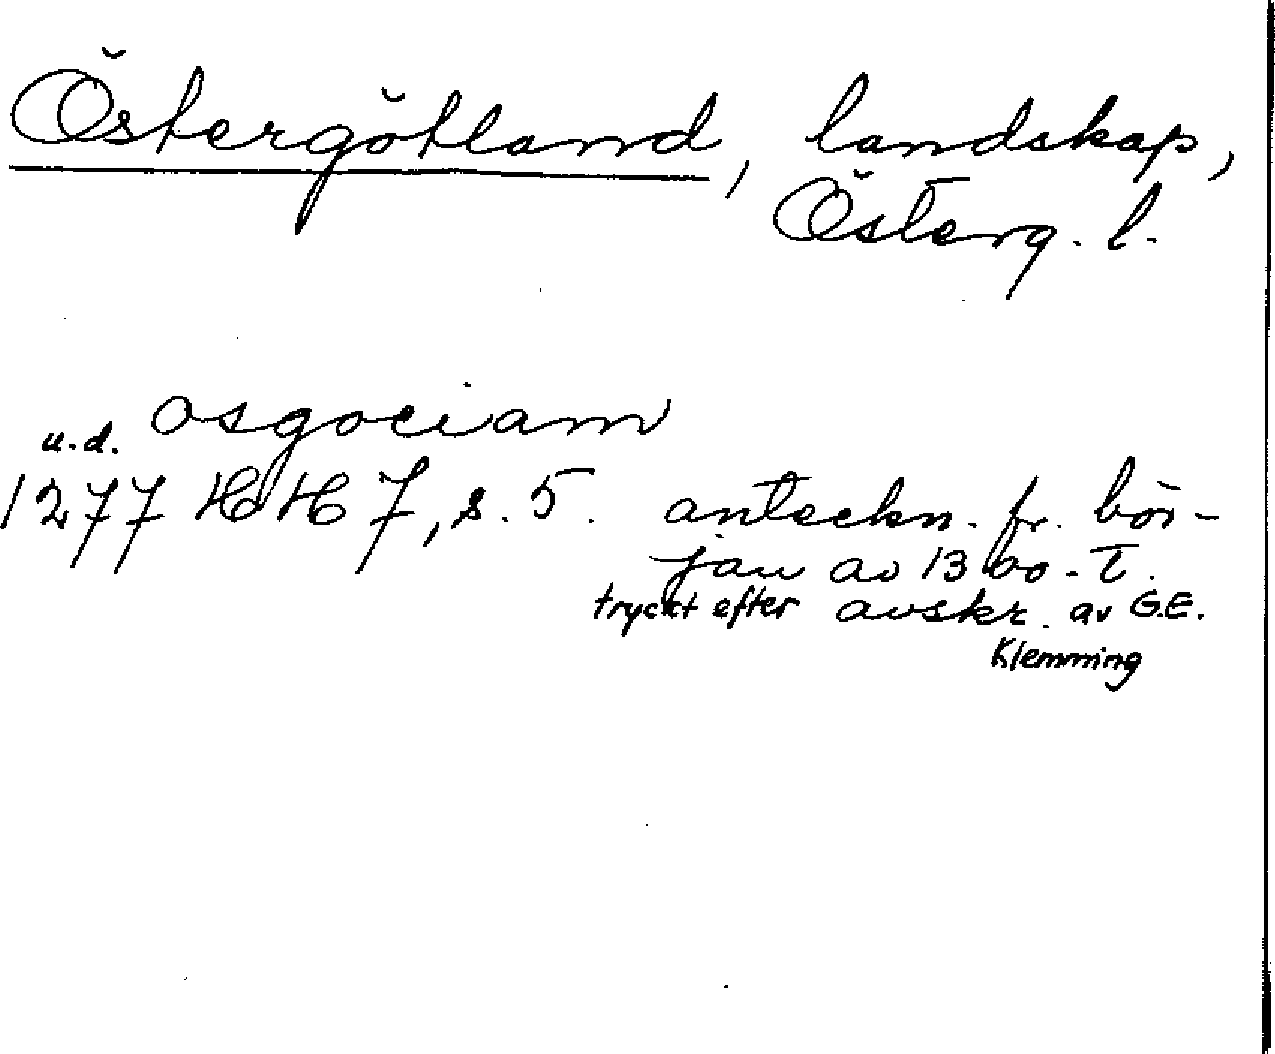 Östergötland, landskap,
Österg. l.
osgociam
u.d.
1277 HH 7, s. 5. anteckn. fr. bör-
jan av 1300-t.
tryckt efter avskr. av G.E.
Klemming